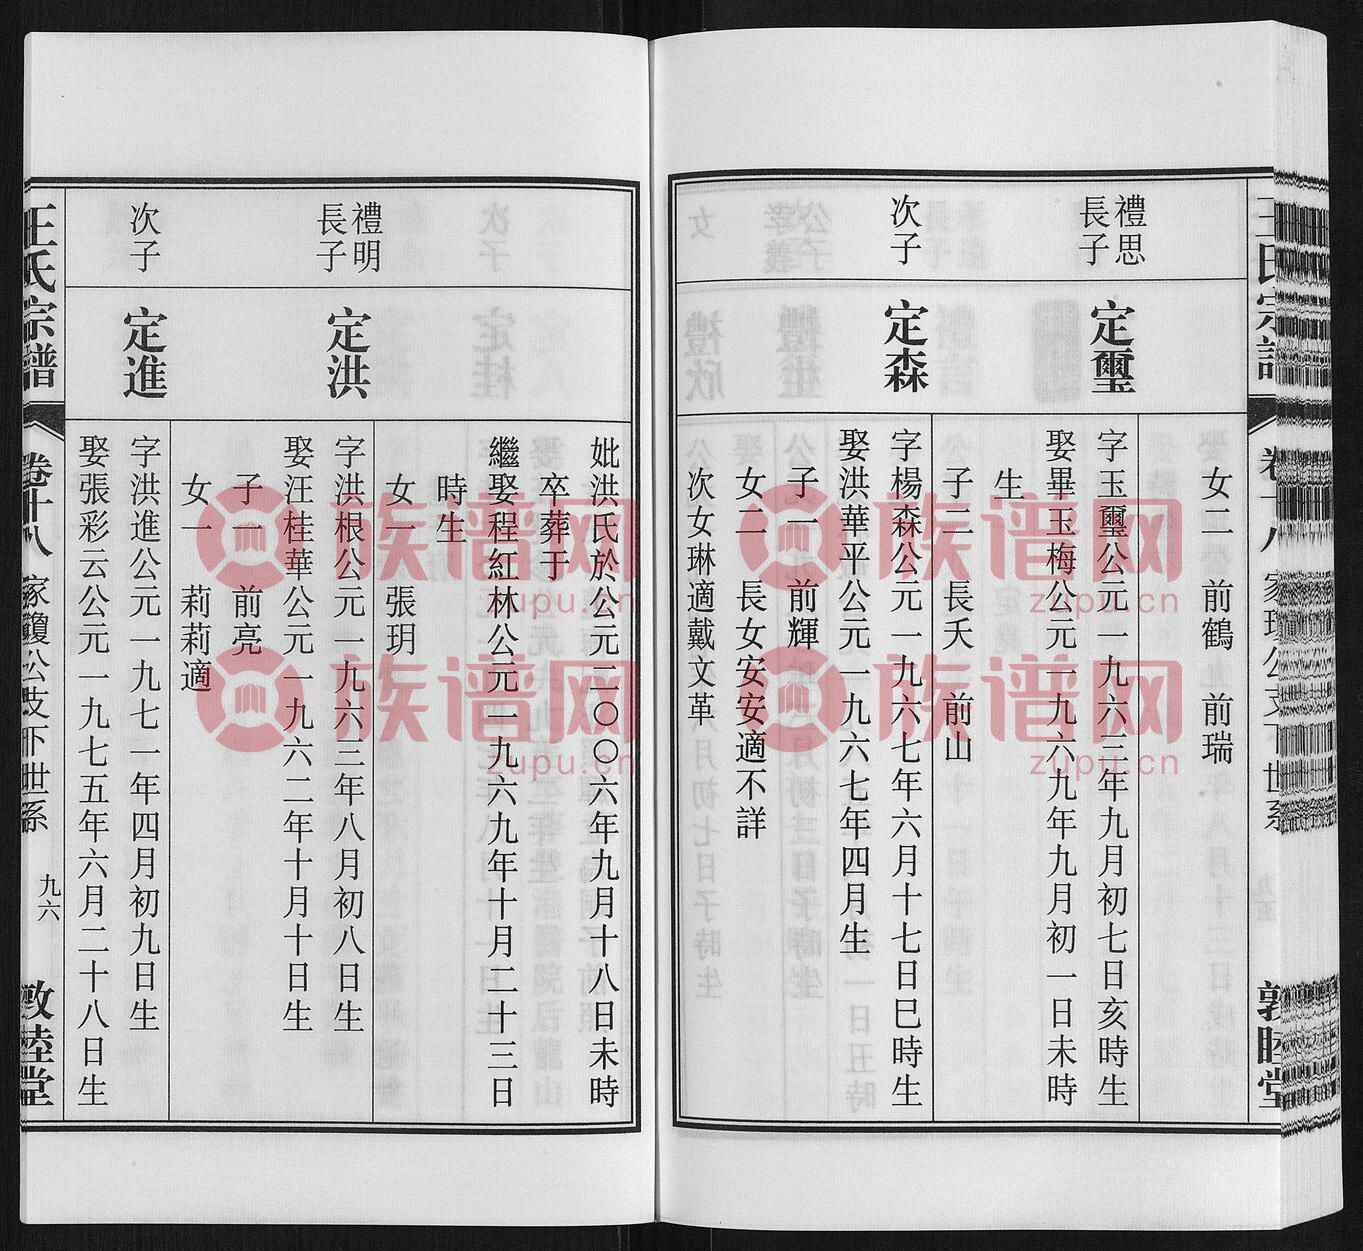 女二　前鶴　前瑞
禮思
長子
定璽
字玉璽公元一九六三年九月初七日亥時生
娶畢玉梅公元一九六九年九月初一日未時
生
子二　長夭　前山
次子
定森
字楊森公元一九六七年六月十七日巳時生
娶洪華平公元一九六七年四月生
子一　前輝
女二　長女安安適不詳
次女琳適戴文革
妣洪氏於公元二〇〇六年九月十八日未時
卒葬于
繼娶程紅林公元一九六九年十月二十三日
時生
女一　張玥
禮明
長子
定洪
字洪根公元一九六三年八月初八日生
娶汪桂華公元一九六二年十月十日生
子一　前亮
女一　莉莉適
次子
定進
字洪進公元一九七一年四月初九日生
娶張彩云公元一九七五年六月二十八日生
王氏宗譜
卷十八
家瓊公支下世系
九六
敦睦堂
族谱网
zupu.cn
族谱网
zupu.cn
族谱网
zupu.cn
族谱网
zupu.cn